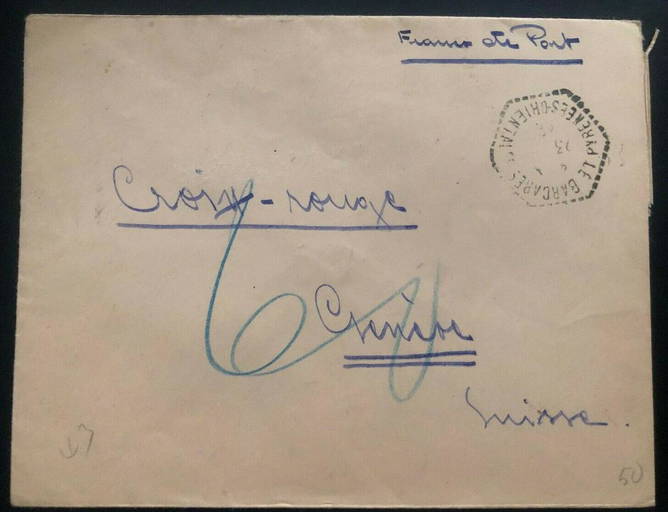 Franco de Port
LE BARCARÈS
PYRÉNÉES-ORIENTALES
23
Croix-rouge
Genève
Suisse.
50